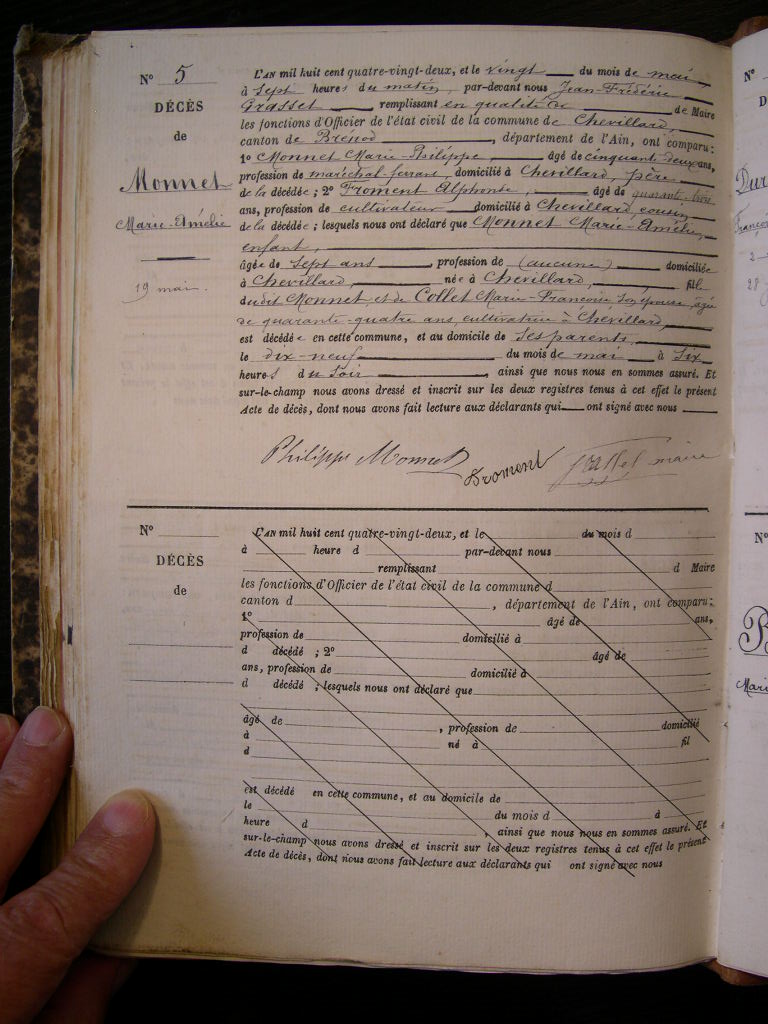 N° 5
DÉCÈS
de
Monnet
Marie-Amélie
19 mai.
L'AN mil huit cent quatre-vingt-deux, et le vingt du mois de mai
à Sept heures du matin, par-devant nous Jean-Frédéric
Grasset remplissant en qualité de de Maire
les fonctions d'Officier de l'état civil de la commune de Chevillard,
canton de Brénod, département de l'Ain, ont comparu:
1° Monnet Marie-Philippe, âgé de cinquante deux ans,
profession de maréchal-ferrant, domicilié à Chevillard, père
de la décédée; 2° Froment Alphonse, âgé de quarante-trois
ans, profession de cultivateur domicilié à Chevillard, cousin
de la décédée; lesquels nous ont déclaré que Monnet Marie-Amélie,
enfant,
âgée de Sept ans, profession de (aucune) domiciliée
à Chevillard, née à Chevillard, fil
dudit Monnet, et de Collet Marie-Françoise son épouse, âgée
de quarante-quatre ans, cultivatrice à Chevillard,
est décédée en cette commune, et au domicile de Ses parents,
le dix-neuf du mois de mai à Six
heures du Soir, ainsi que nous nous en sommes assuré. Et
sur-le-champ nous avons dressé et inscrit sur les deux registres tenus à cet effet le présent
Acte de décès, dont nous avons fait lecture aux déclarants qui ont signé avec nous
Philippe Monnet Froment Grasset maire
N°
DÉCÈS
de
L'AN mil huit cent quatre-vingt-deux, et le du mois d
à heure d par-devant nous
remplissant d Maire
les fonctions d'Officier de l'état civil de la commune d
canton d , département de l'Ain, ont comparu:
1° âgé de ans,
profession de domicilié à
d décédé ; 2° âgé de
ans, profession de domicilié à
d décédé ; lesquels nous ont déclaré que
âgé de , profession de domicilié
à né à fil
d
est décédé en cette commune, et au domicile de
le du mois d à
heure d , ainsi que nous nous en sommes assuré. Et
sur-le-champ nous avons dressé et inscrit sur les deux registres tenus à cet effet le présent
Acte de décès, dont nous avons fait lecture aux déclarants qui ont signé avec nous
N°
D
Dur
Franço
28
N°
Mari